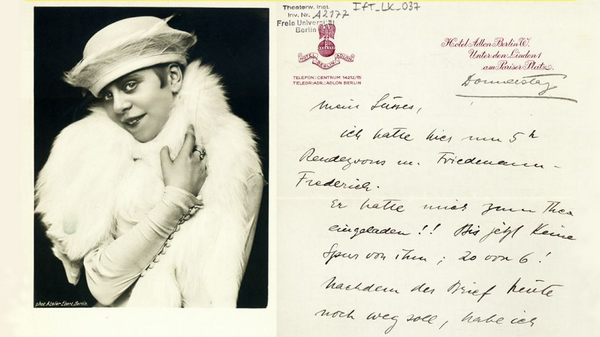 Theaterw. Inst.
Inv. Nr. A2177
Freie Universität
Berlin
IfT_LK_037
HOTEL ADLON
BERLIN
TELEFON: CENTRUM 14212/15
TELEGR.: ADLON BERLIN
Hotel Adlon Berlin W.
Unter den Linden 1
am Pariser Platz
Donnerstag
mein Süsses,
ich hatte hier um 5 h
Rendezvous m. Friedemann-
Frederich.
Er hatte mich zum Thea
eingeladen!! Bis jetzt keine
Spur von ihm; 20 von 6!
Nachdem der Brief heute
noch weg soll, habe ich
phot. Atelier Ebert, Berlin.